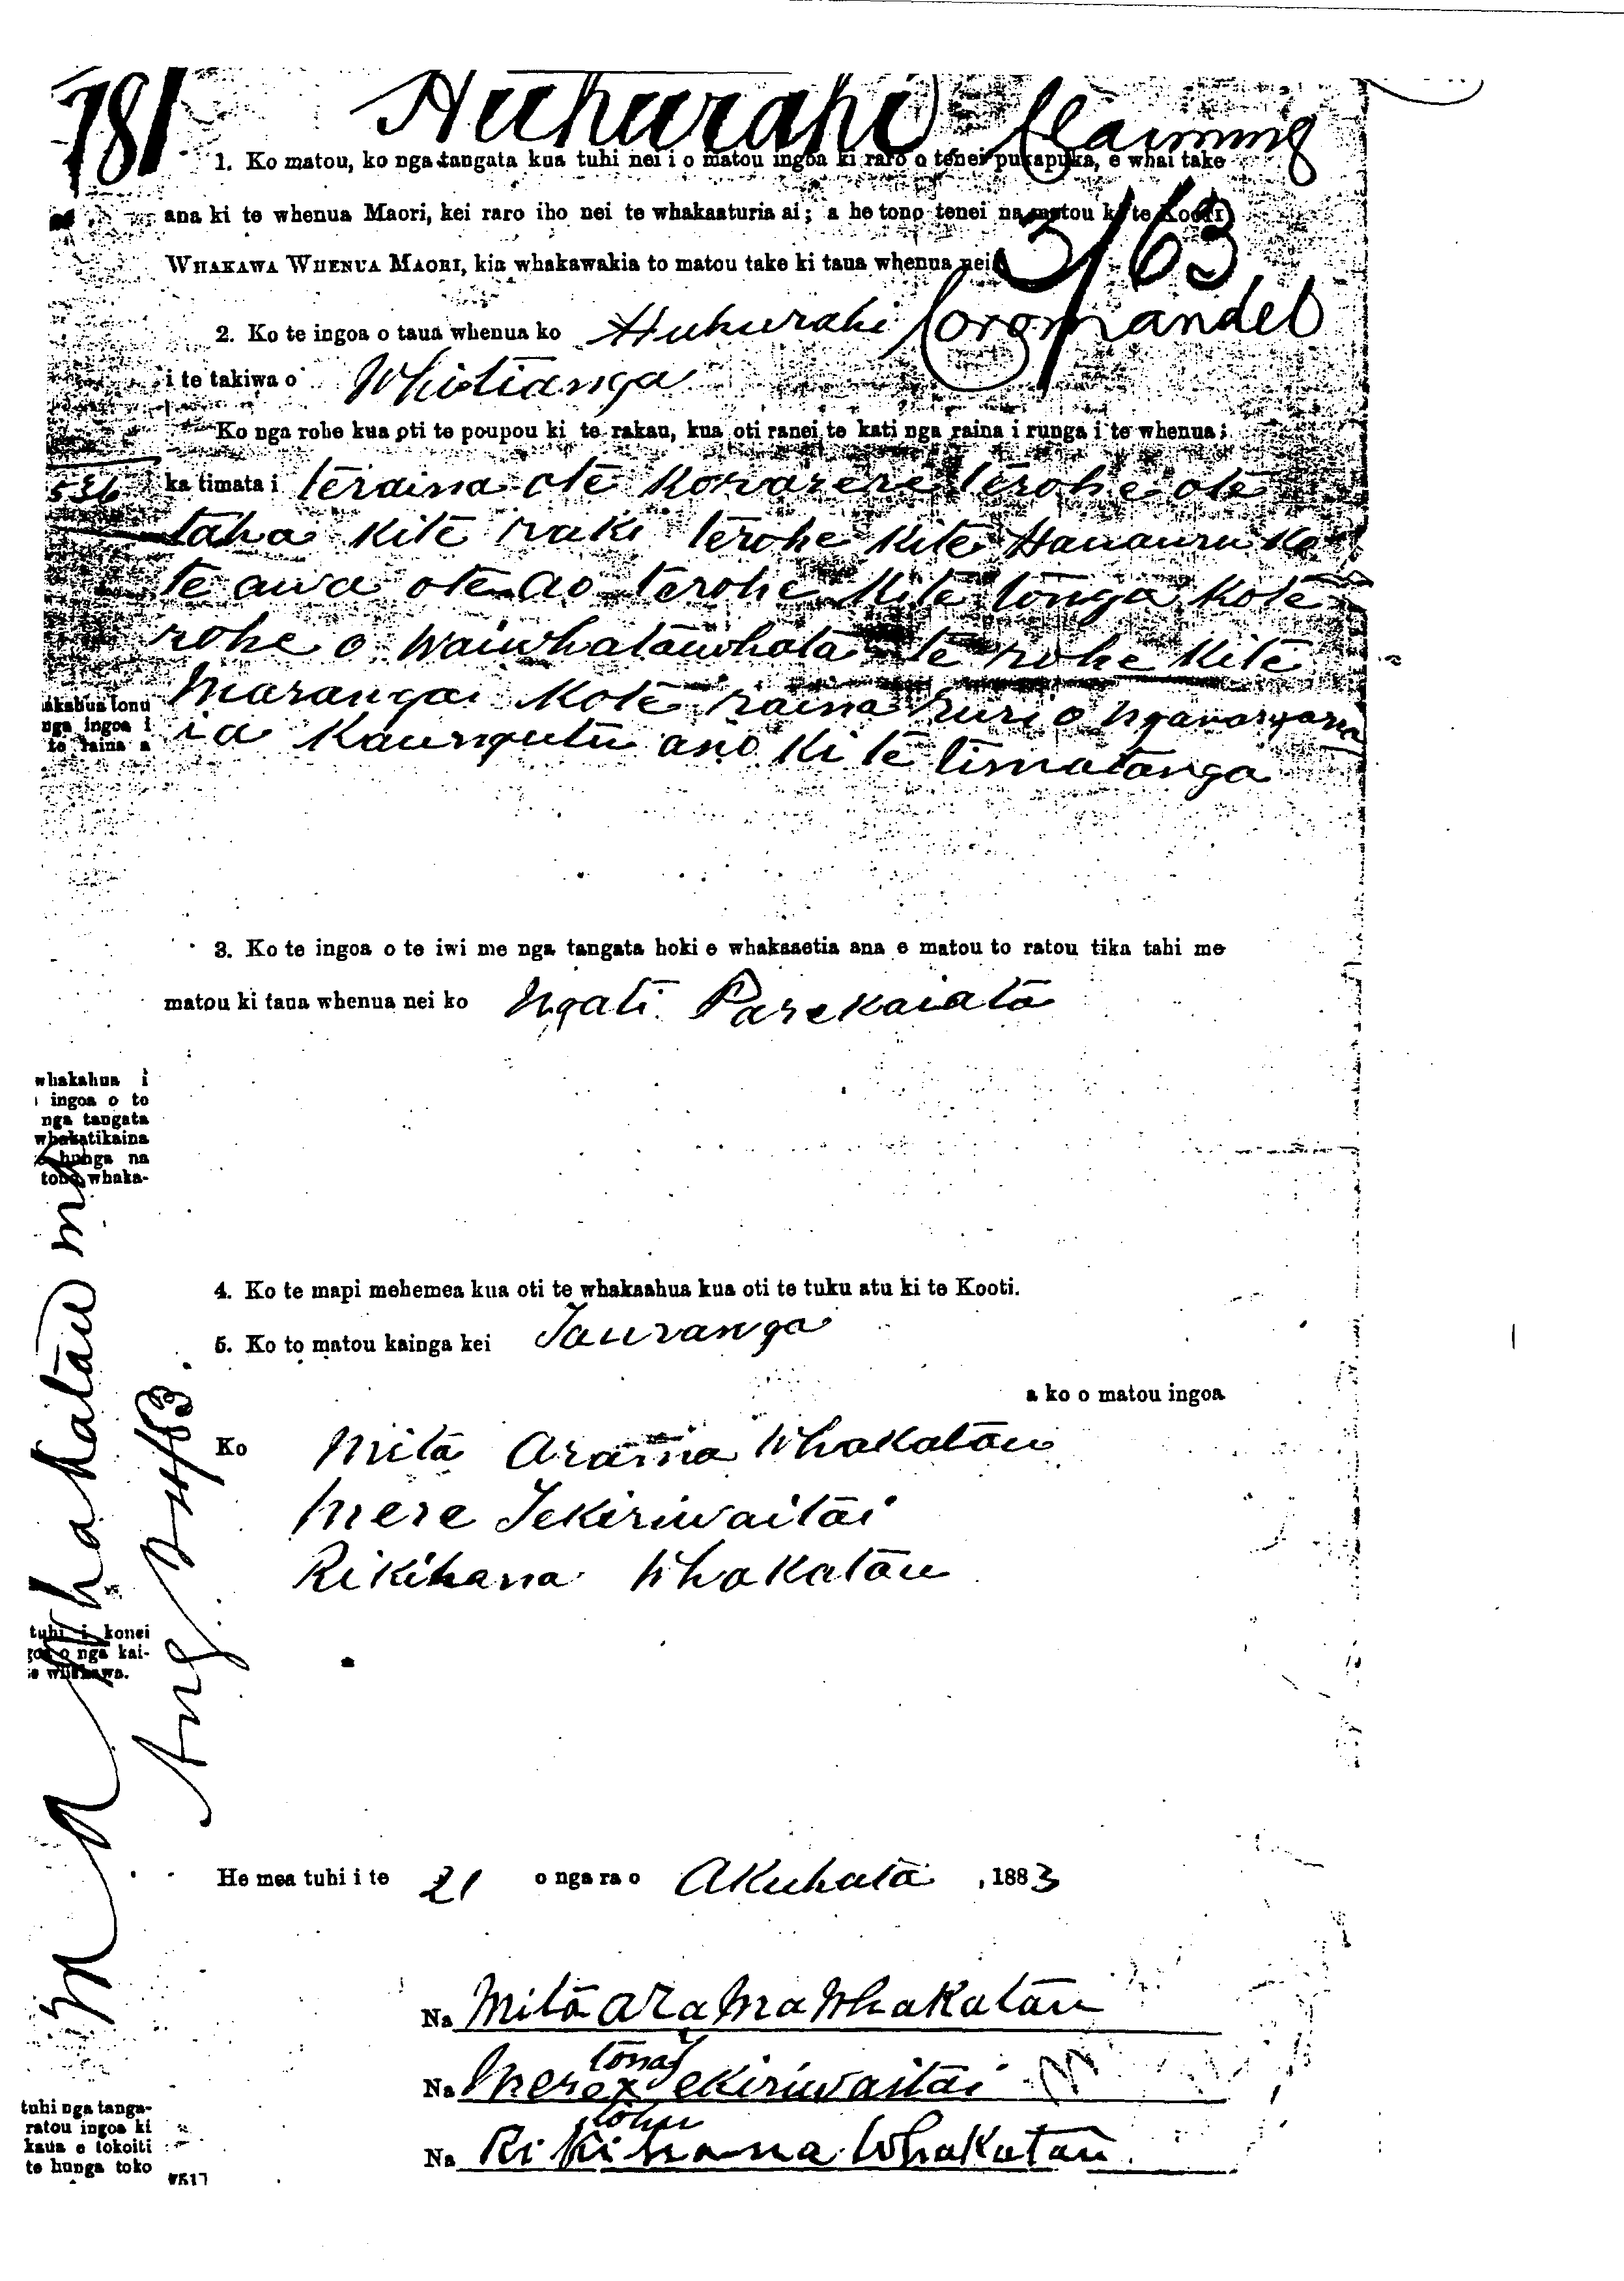 781
Huhurahi Claiming
1. Ko matou, ko nga tangata kua tuhi nei i o matou ingoa ki raro o tenei pukapuka, e whai take
ana ki te whenua Maori, kei raro iho nei te whakaaturia ai; a he tono tenei na matou ki te Kooti
WHAKAWA WHENUA MAORI, kia whakawakia to matou take ki taua whenua nei.
3/63
2. Ko te ingoa o taua whenua ko Huhurahi Coromandel
i te takiwa o Whitianga
Ko nga rohe kua oti te poupou ki te rakau, kua oti ranei te kati nga raina i runga i te whenua;
536
ka timata i teraina ote Kowarere terohe ote
taha kite raki terohe kite Hauauru Ko
te awa ote ao terohe kite tonga kote
rohe o Waiwhatawhata te rohe kite
Marangai kote raina huri o
ia Kaungutu ano ki te timatanga
akahua tonu
nga ingoa i
te raina a
3. Ko te ingoa o te iwi me nga tangata hoki e whakaaetia ana e matou to ratou tika tahi me
matou ki taua whenua nei ko Ngati Parekaiata
whakahua i
ingoa o te
nga tangata
whakatikaina
hunga na
tono whaka-
4. Ko te mapi mehemea kua oti te whakaahua kua oti te tuku atu ki te Kooti.
5. Ko to matou kainga kei Tauranga
a ko o matou ingoa
Ko Mita Arama Whakatau
Mere Tekiriwaitai
Rikihana Whakatau
tuhi i konei
goa o nga kai-
te whakawa.
M A Whakatau
Aug 24/83.
He mea tuhi i te 21 o nga ra o Akuhata, 1883
Na Mita arama Whakatau
tona
Na Mere x Tekiriwaitai
tohu
Na Rikihana Whakatau
tuhi nga tanga-
ratou ingoa ki
kaua e tokoiti
te hunga toko